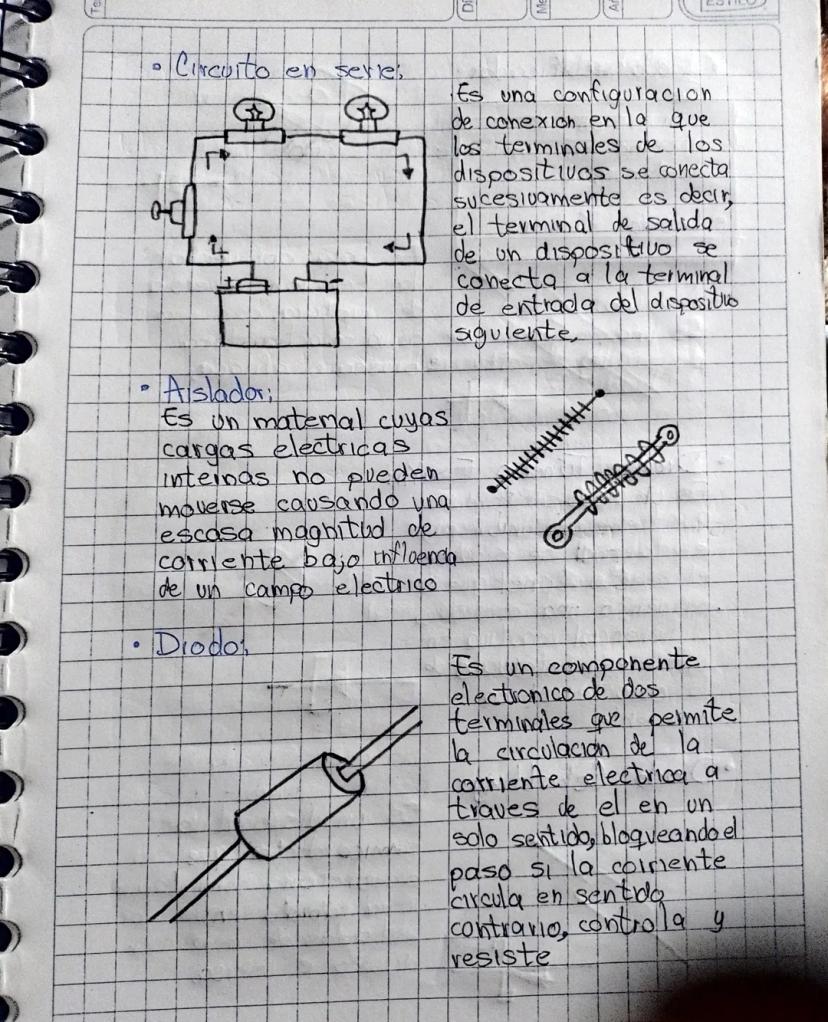 • Circuito en serie:
Es una configuracion
de conexion en la que
los terminales de los
dispositivos se conecta
sucesivamente es decir,
el terminal de salida
de un dispositivo se
conecta a la terminal
de entrada del dispositivo
siguiente,
+ -
• Aislador:
Es un material cuyas
cargas electricas
internas no pueden
moverse causando una
escasa magnitud de
corriente bajo influencia
de un campo electrico
• Diodo:
Es un componente
electronico de dos
terminales que permite
la circulacion de la
corriente electrica a
traves de el en un
solo sentido, bloqueando el
paso si la corriente
circula en sentido
contrario, controlla y
resiste